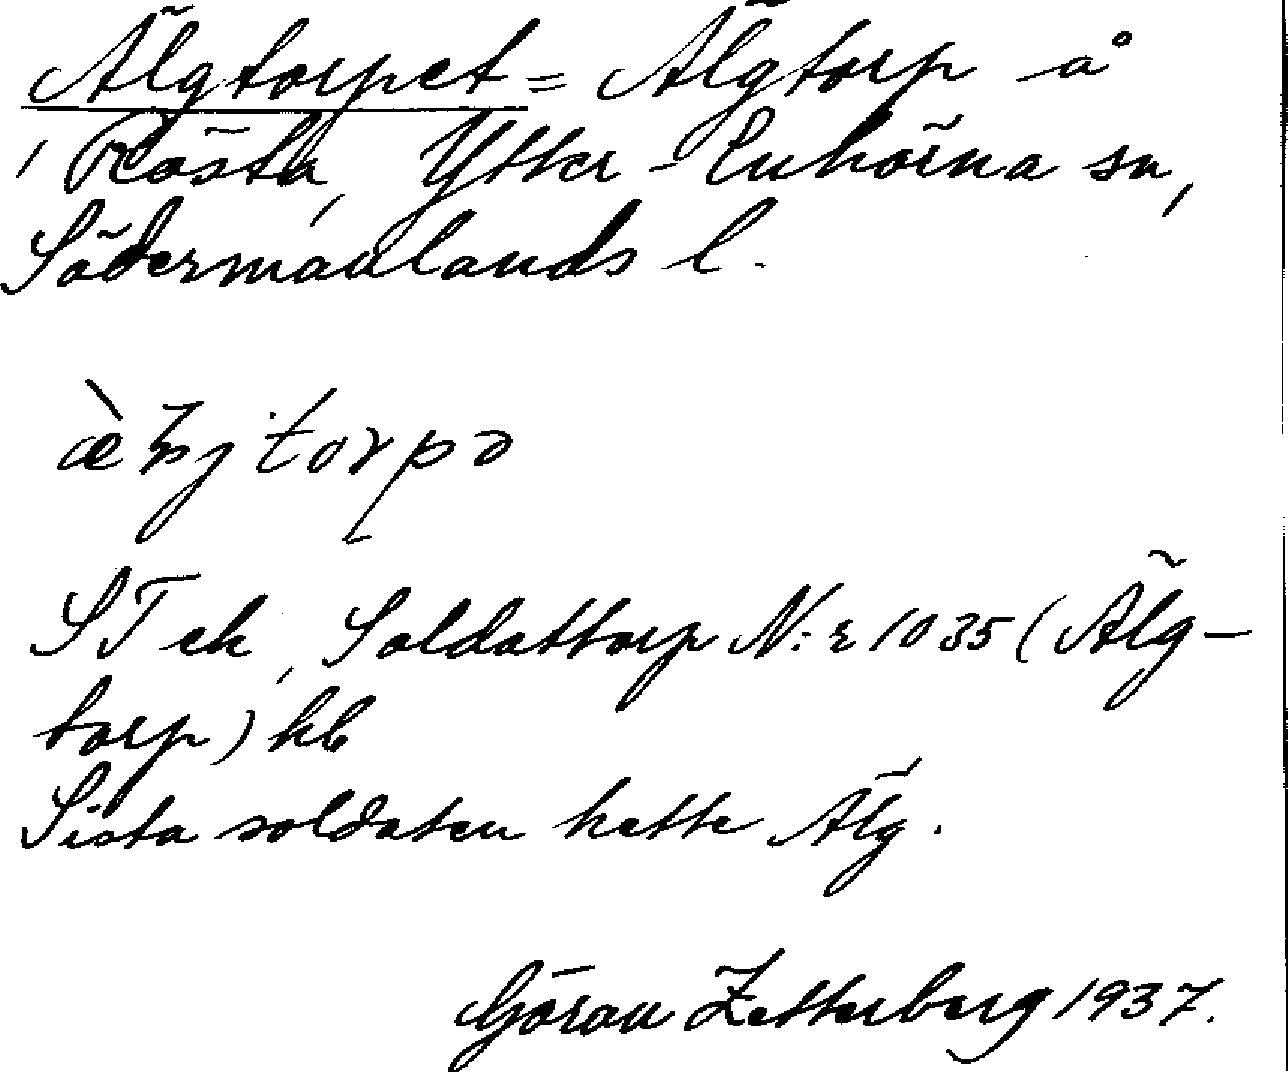 Älgtorpet = Älgtorp å
/ Rösta, Ytter-Enhörna sn,
Södermanlands l.
torpə
STek, Soldattorp N:r 1035 (Älg-
torp) hb
Sista soldaten hette Älg.
Göran Zetterberg 1937.